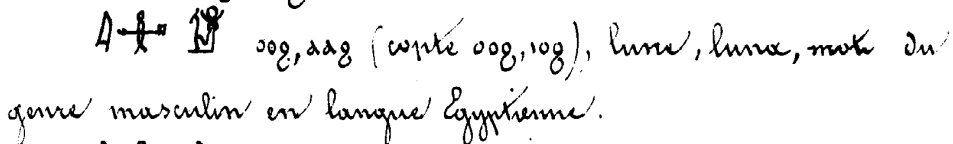 ⲟⲟϩ, ⲁⲁϩ (copte ⲟⲟϩ, ⲓⲟϩ), lune, luna, mot du
genre masculin en langue Égyptienne.